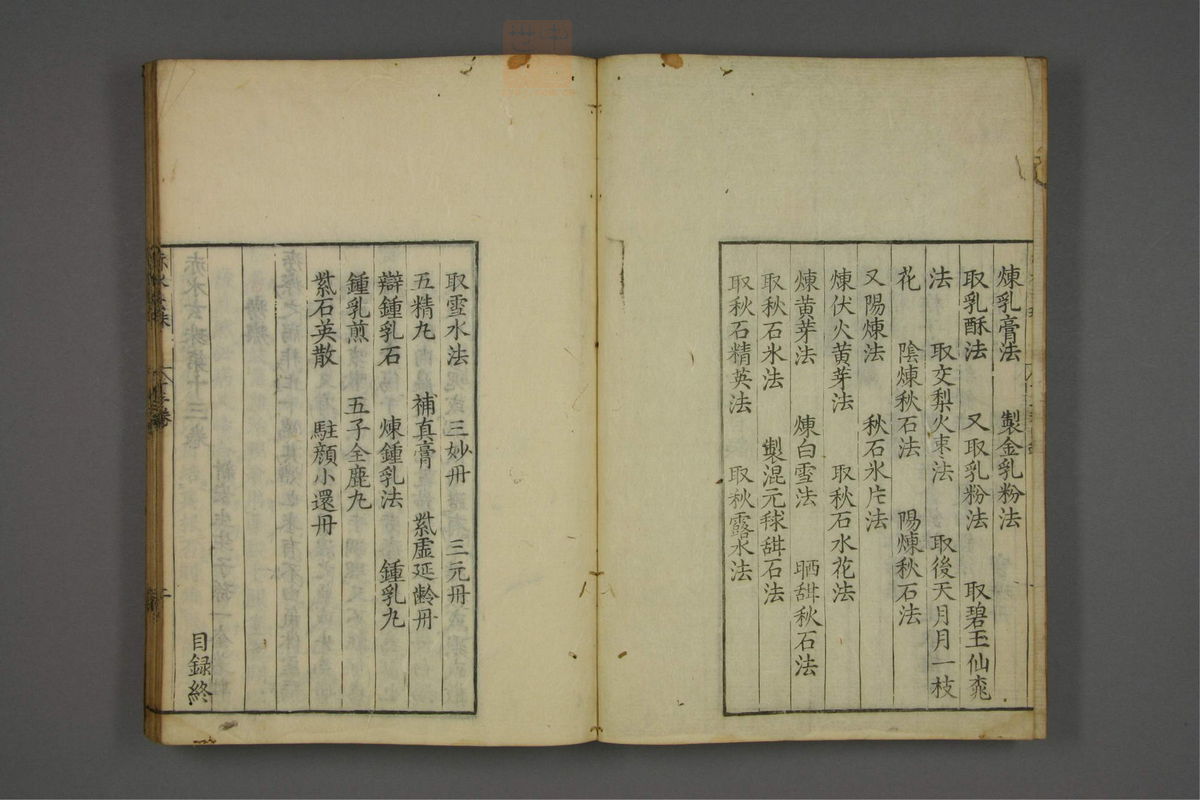 煉乳膏法 製金乳粉法
取乳酥法 又取乳粉法 取碧玉仙桃
法 取交梨火枣法 取後天月月一枝
花 陰煉秋石法 陽煉秋石法
又陽煉法 秋石氷片法
煉伏火黄芽法 取秋石水花法
煉黄芽法 煉白雪法 晒甜秋石法
取秋石氷法 製混元毬甜石法
取秋石精英法 取秋露水法
取雪水法 三妙丹 三元丹
五精丸 補真膏 紫虚延齡丹
辯鍾乳石 煉鍾乳法 鍾乳丸
鍾乳煎 五子全鹿丸
紫石英散 駐顔小還丹
目録終